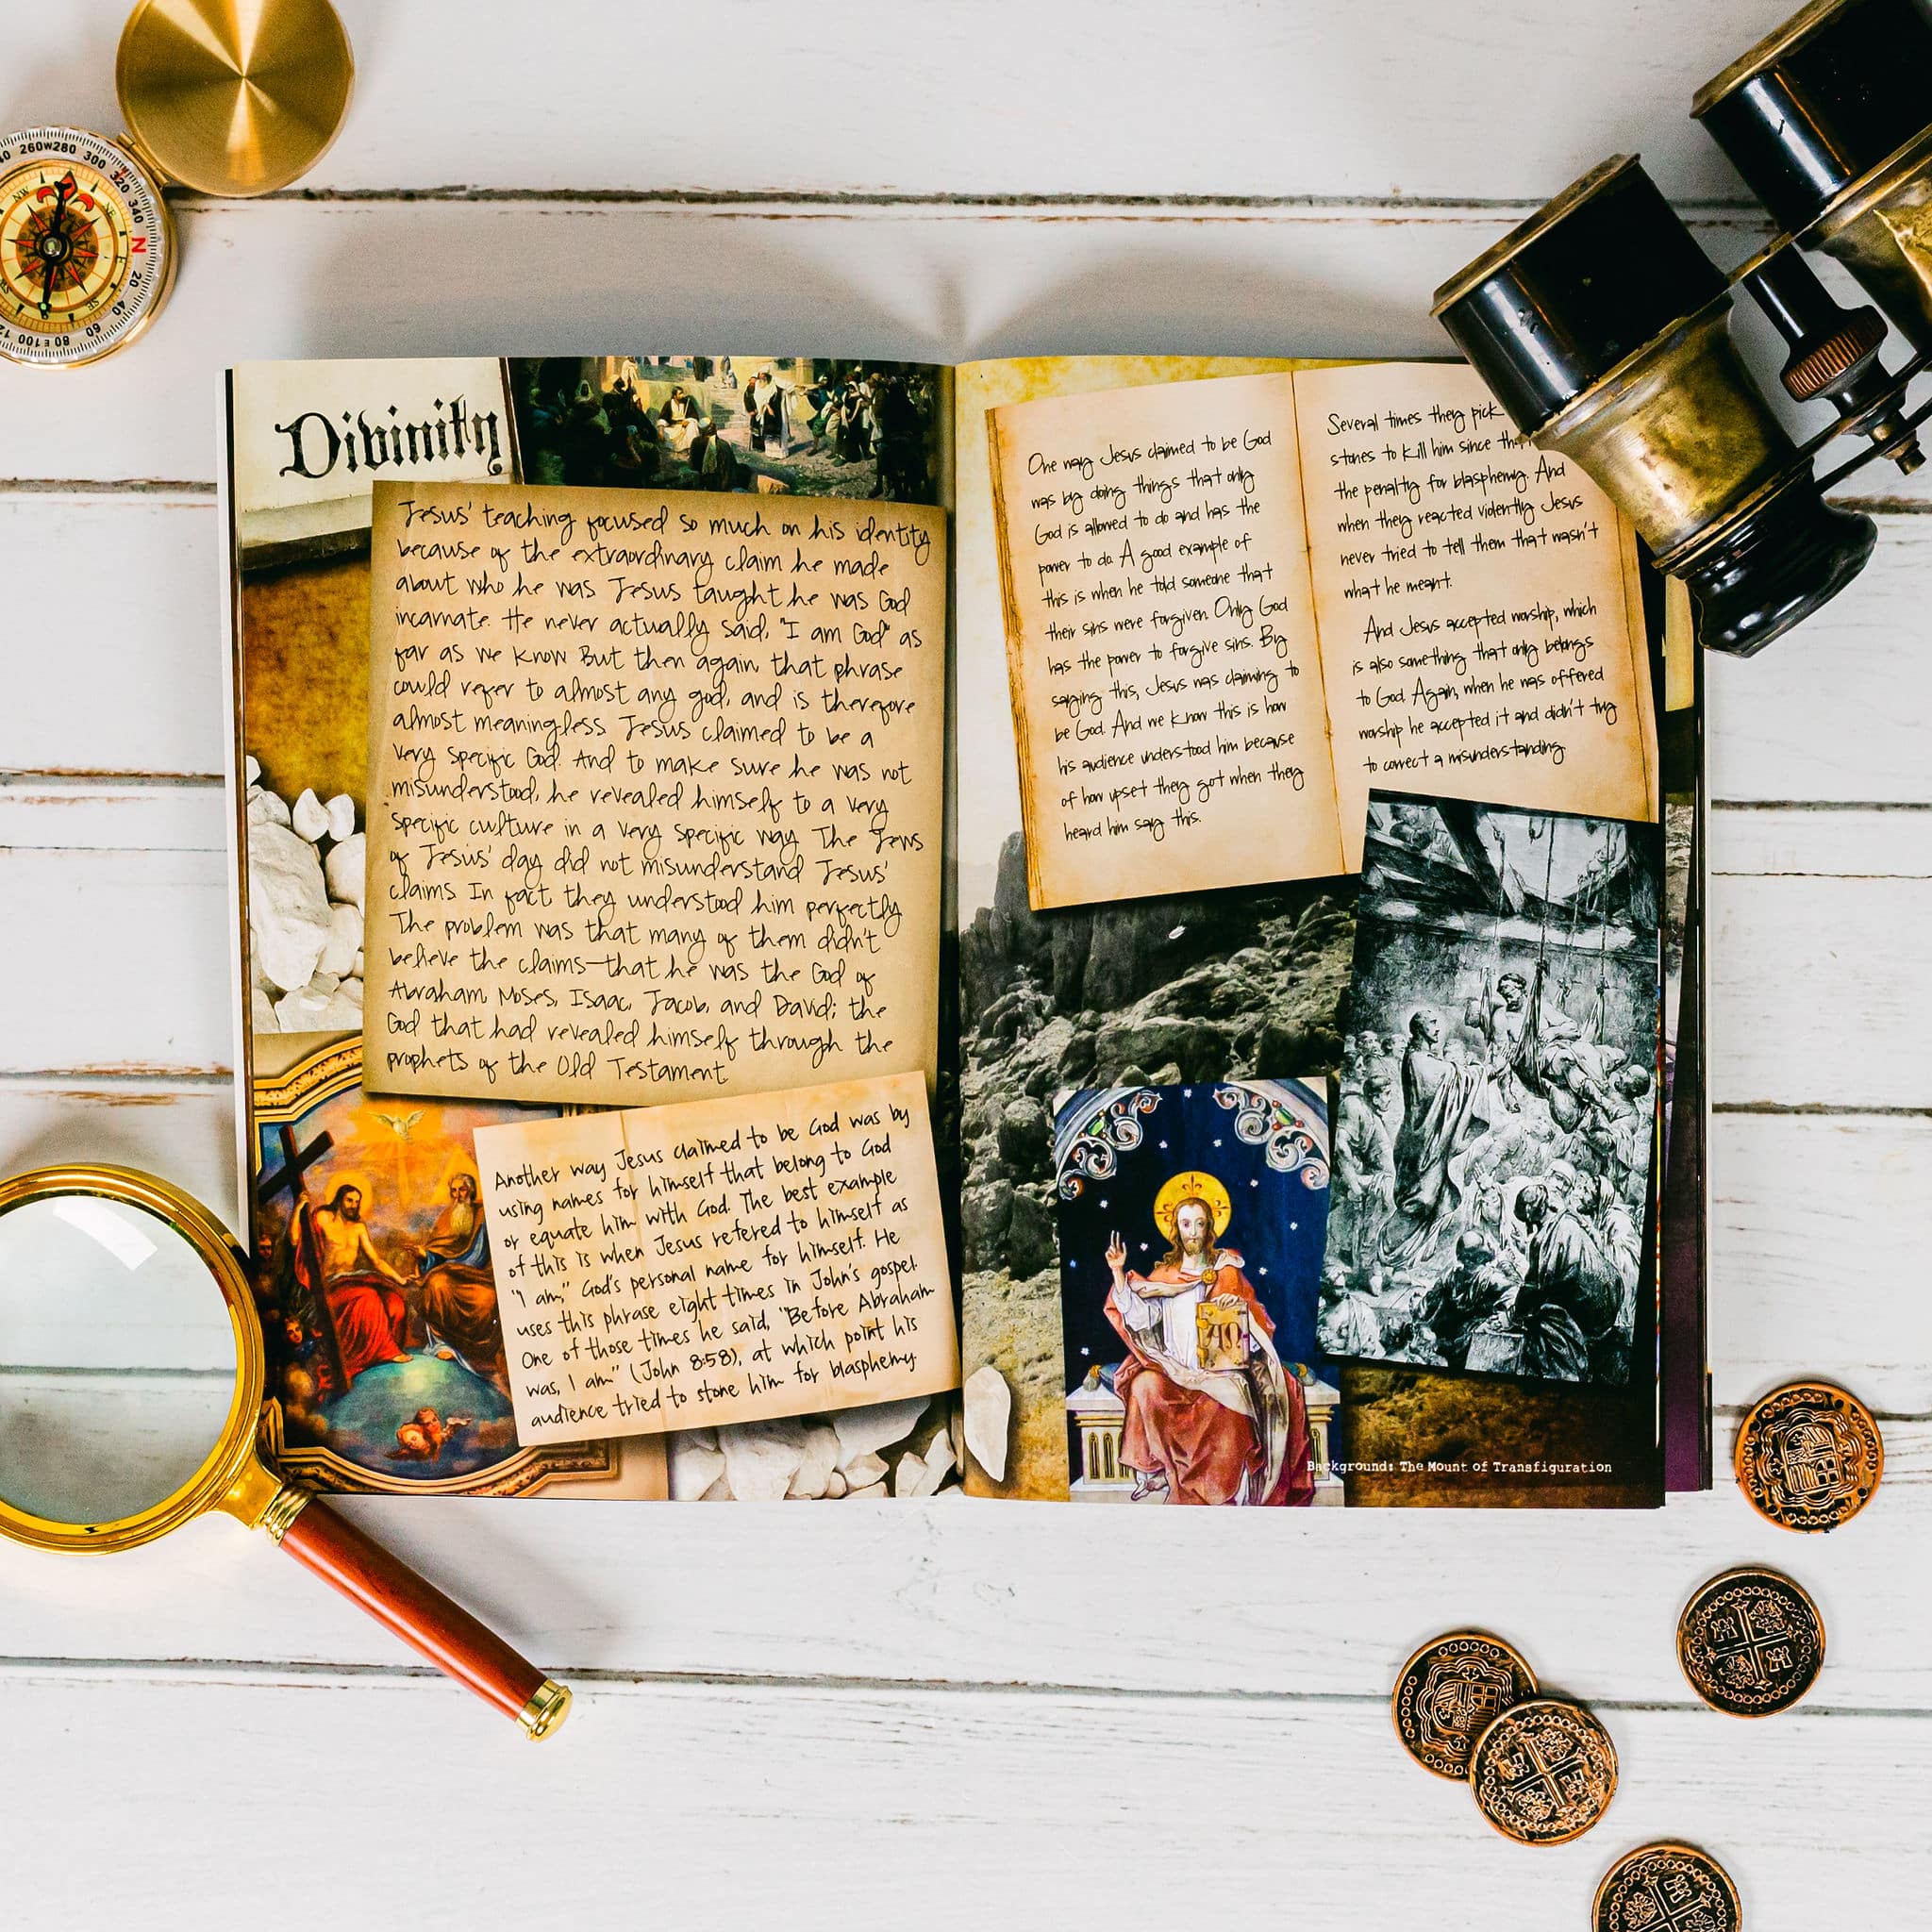 Divinity
Jesus' teaching focused so much on his identity
because of the extraordinary claim he made
about who he was Jesus taught he was God
incarnate. He never actually said, "I am God" as
far as we know But then again, that phrase
could refer to almost any god, and is therefore
almost meaningless Jesus claimed to be a
very specific God. And to make sure he was not
misunderstood, he revealed himself to a very
specific culture in a very specific way The Jews
of Jesus' day did not misunderstand Jesus'
claims. In fact they understood him perfectly
The problem was that many of them didn't
believe the claims—that he was the God of
Abraham, Moses, Isaac, Jacob, and David; the
God that had revealed himself through the
prophets of the Old Testament
Another way Jesus claimed to be God was by
using names for himself that belong to God
or equate him with God. The best example
of this is when Jesus refered to himself as
"I am," God's personal name for himself. He
uses this phrase eight times in John's gospel.
One of those times he said, "Before Abraham
was, I am" (John 8:58), at which point his
audience tried to stone him for blasphemy.
One way Jesus claimed to be God
was by doing things that only
God is allowed to do and has the
power to do. A good example of
this is when he told someone that
their sins were forgiven. Only God
has the power to forgive sins. By
saying this, Jesus was claiming to
be God. And we know this is how
his audience understood him because
of how upset they got when they
heard him say this.
Several times they pick
stones to kill him since
the penalty for blasphemy. And
when they reacted violently Jesus
never tried to tell them that wasn't
what he meant.
And Jesus accepted worship, which
is also something that only belongs
to God. Again, when he was offered
worship he accepted it and didn't try
to correct a misunderstanding
Background: The Mount of Transfiguration
260 W 280 300 320 340 N 20 40 60 80 E 100
NW
NE
SE